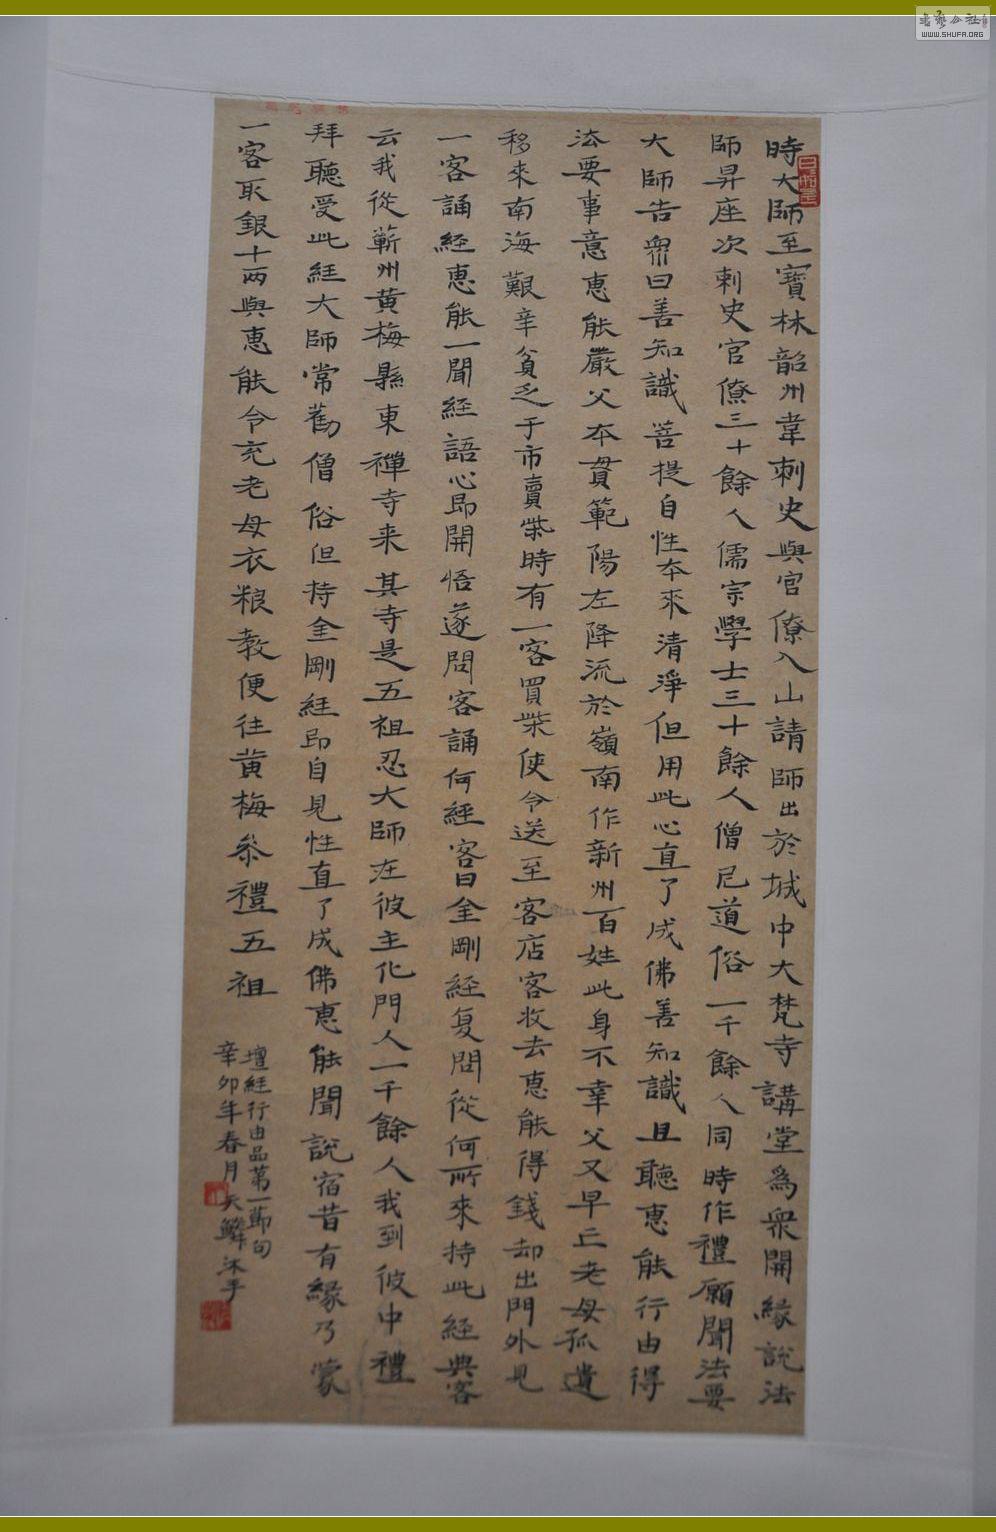 時大師至寶林韶州韋刺史與官僚入山請師出於城中大梵寺講堂為衆開緣說法
師昇座次刺史官僚三十餘人儒宗學士三十餘人僧尼道俗一千餘人同時作禮願聞法要
大師告衆曰善知識菩提自性本來清淨但用此心直了成佛善知識且聽惠能行由得
法要事意惠能嚴父本貫範陽左降流於嶺南作新州百姓此身不幸父又早亡老母孤遺
移來南海艱辛貧乏于市賣柴時有一客買柴使令送至客店客收去惠能得錢却出門外見
一客誦經惠能一聞經語心即開悟遂問客誦何經客曰金剛經复問從何所來持此經典客
云我從蘄州黃梅縣東禪寺来其寺是五祖忍大師在彼主化門人一千餘人我到彼中禮
拜聽受此經大師常勸僧俗但持金剛經即自見性直了成佛惠能聞說宿昔有緣乃蒙
一客取銀十兩與惠能令充老母衣粮教便往黃梅叅禮五祖
壇經行由品第一節句
辛卯年春月天鱗沐手
書藝公社
WWW.SHUFA.ORG